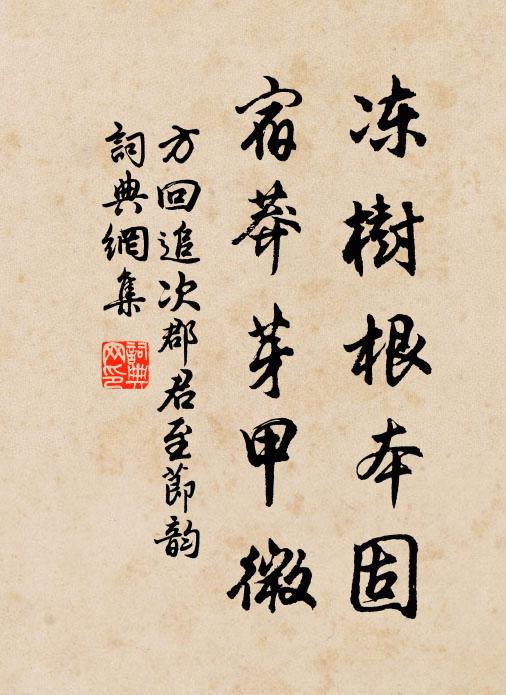 冻樹根本固
宿莽芽甲微
方回追次郡君至節韵
詞典網集
詞典网印